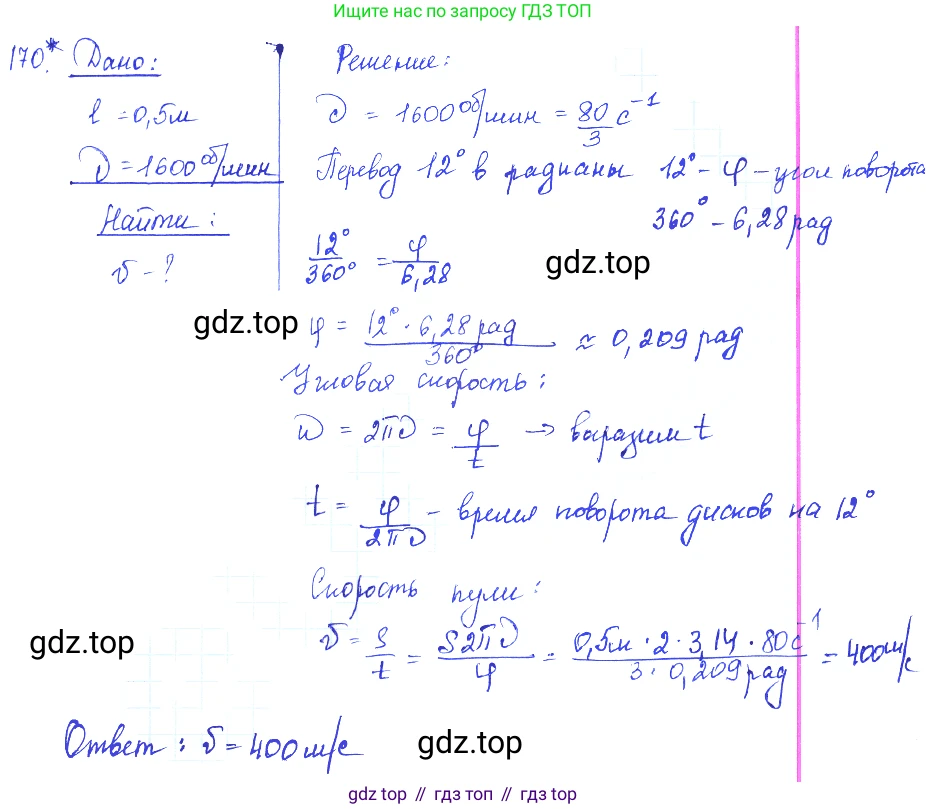 Ищите нас по запросу ГДЗ ТОП
170.* Дано: Решение:
l = 0,5м
ν = 1600 об/мин = 80/3 с⁻¹
ν = 1600 об/мин
Перевод 12° в радианы 12° - φ - угол поворота
360° - 6,28 рад
Найти:
υ - ?
12°/360° = φ/6,28
gdz.top
gdz.top
φ = 12° · 6,28 рад/360° ≈ 0,209 рад
Угловая скорость:
ω = 2πν = φ/t → выразим t
t = φ/2πν - время поворота дисков на 12°
Скорость пули:
gdz.top
υ = S/t = S2πν/φ = 0,5м · 2 · 3,14 · 80с⁻¹/3 · 0,209 рад = 400м/с
Ответ: υ = 400 м/с
gdz.top
gdz.top // гдз топ // гдз top